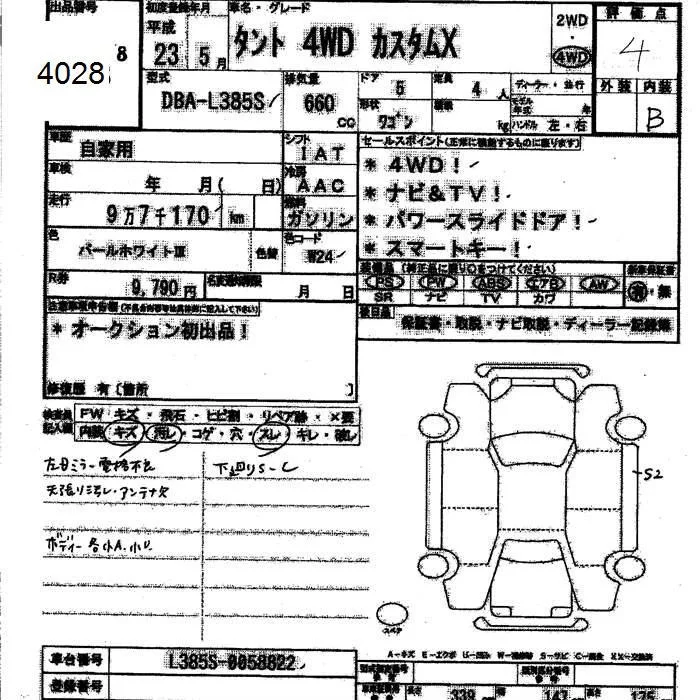 出品番号
初度登録年月
車名・グレード
2WD
評価点
8
平成
23 5月
タント 4WD カスタムX
4WD
4
4028
型式
排気量
ドア 5
定員 4人
外装 内装
DBA-L385S
660
CC
形状
ワゴン
B
車歴
自家用
シフト
IAT
セールスポイント(正常に機能するものに限ります)
車検
年 月( 日)
冷房
AAC
* 4WD!
* ナビ&TV!
走行
9万7千170 km
燃料
ガソリン
* パワースライドドア!
色
パールホワイトIII
色替
色コード
W24
* スマートキー!
装備品(純正品に限り○をつけてください)
新車保証書
R券
9,790円
名義変更期限
月 日
PS PW ABS エアB AW
有・無
SR ナビ TV カワ
* オークション初出品!
後日品
保証書・取説・ナビ取説・ディーラー記録簿
修復歴 有〔箇所 〕
検査員
記入欄
FW キズ・飛石・ヒビ割・リペア跡・×要
内装 キズ・汚レ・コゲ・穴・スレ・キレ・破レ
左Bミラー電格不良
下廻りS-C
天張り汚レ・アンテナ欠
S2
ボディー各小A.小U
スペア
車台番号
L385S-0058822
登録番号
型式指定番号
類別区分番号
長さ 339 cm
147
176